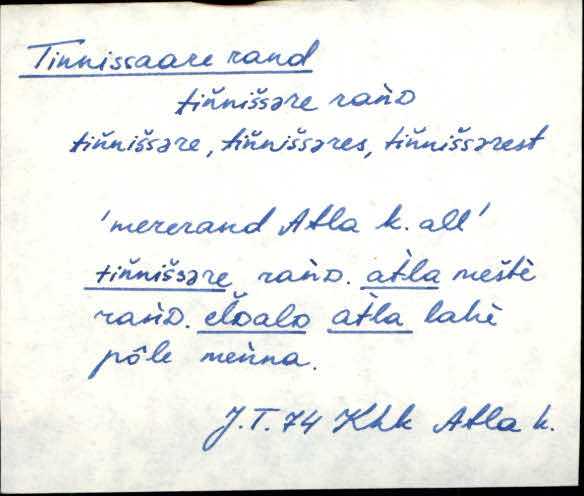 Tinnissaare rand
tiňnišsəre rańD
tiňnišsəre, tiňnišsəres, tiňnišsərest
'mererand Atla k. all'
tiňnišsəre rańD. at̀la meštè
rańD. eĎoalD at̀la lahè
pôle meǹna.
J.T. 74 Khk Atla k.